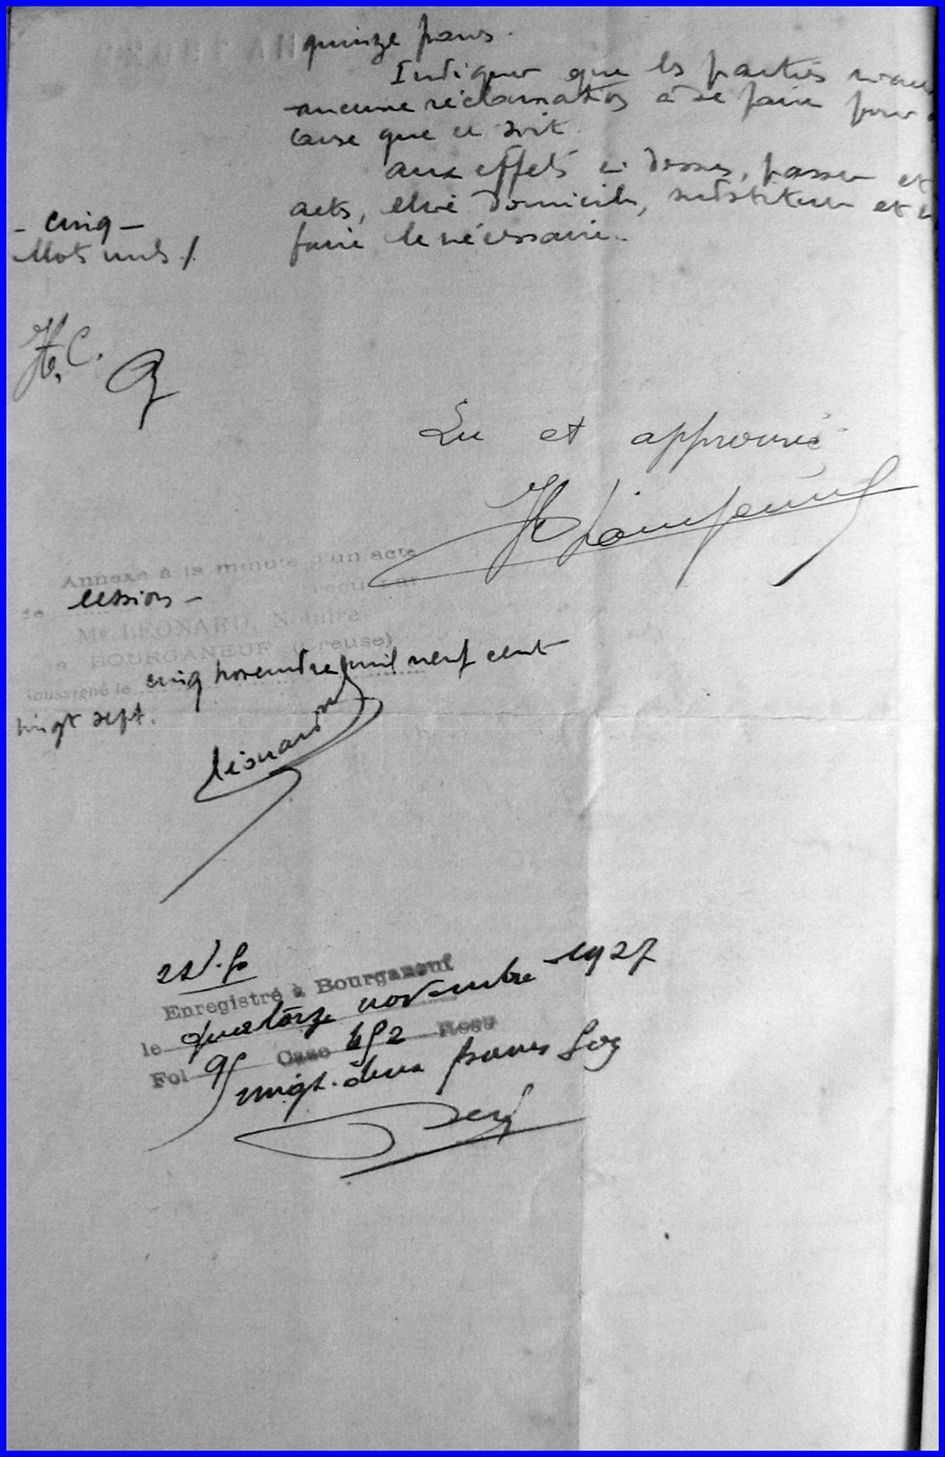 quinze francs.
Indiquer que les parties n'ont
aucune réclamation à se faire pour
cause que ce soit.
aux effets ci dessus, passer et
acts, élire domicile, substituer et
faire le nécessaire.
- cinq -
Mots nuls /
H. C.
Lu et approuvé
Annexé à la minute d'un acte
de cession -
Me LÉONARD, Notaire
à BOURGANEUF (Creuse)
soussigné le cinq novembre mil neuf cent
vingt sept.
Léonard
Enregistré à Bourganeuf
le quatorze novembre 1927
Fol 95 Case 452 Reçu
vingt-deux francs 50